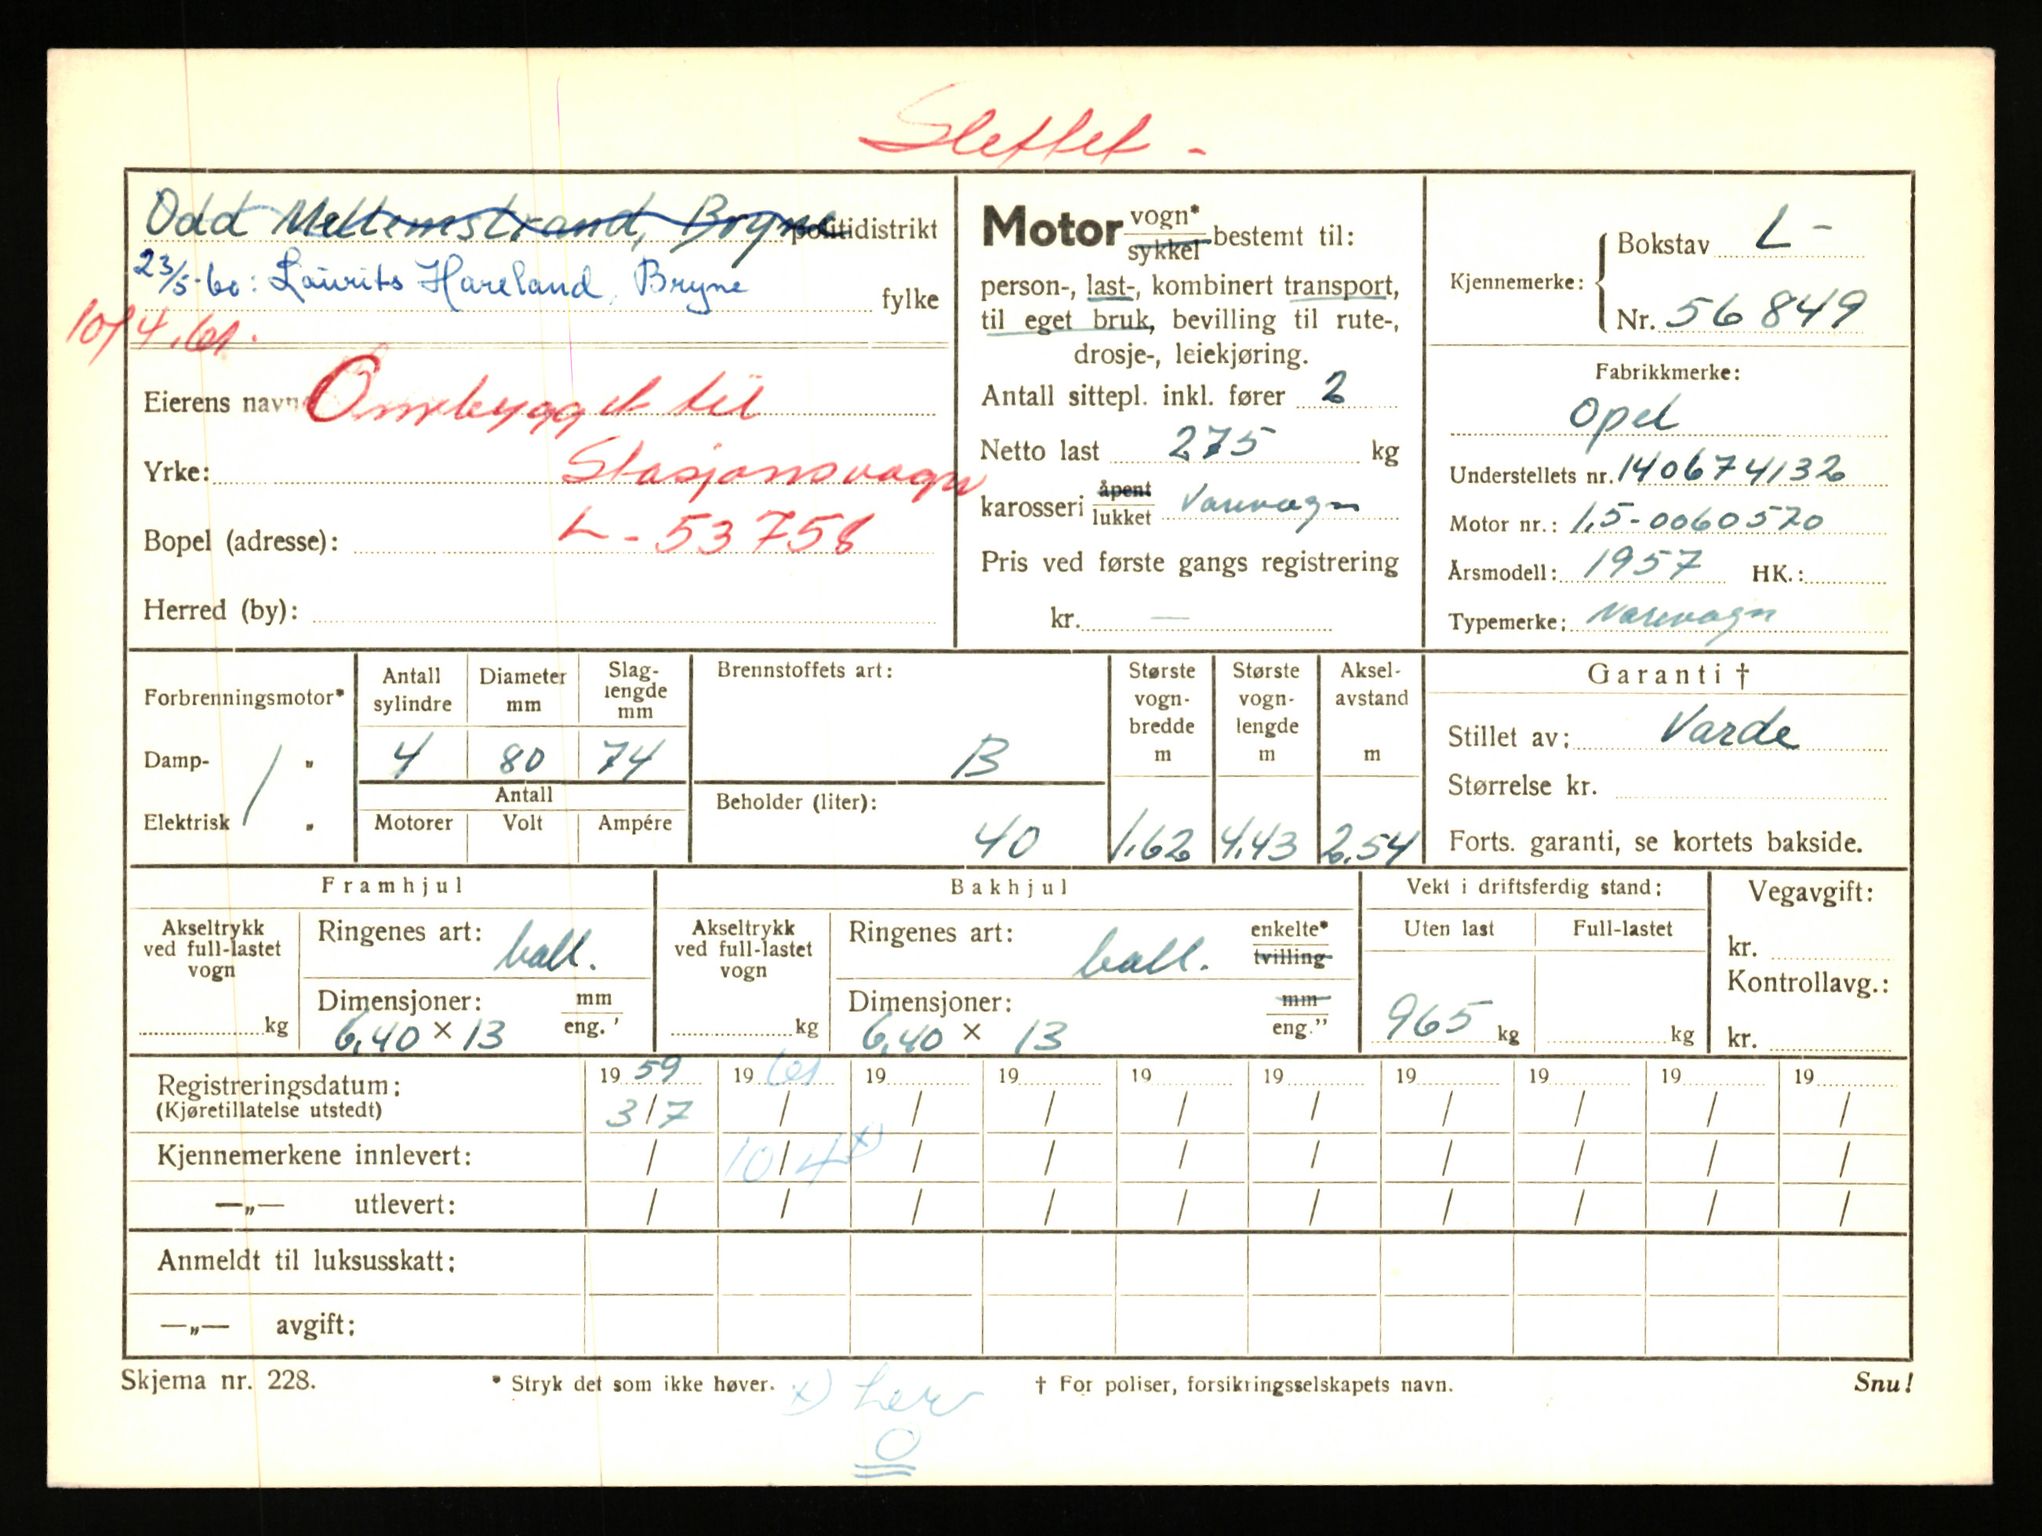 Slettet -
Odd Mellemstrand, Bryne politidistrikt
23/5-60: Laurits Hareland, Bryne
fylke
10/4.61.
Eierens navn Ombygget til
Yrke: Stasjonsvogn
Bopel (adresse): L-53758
Herred (by):
Motor vogn* sykkel bestemt til:
person-, last-, kombinert transport,
til eget bruk, bevilling til rute-,
drosje-, leiekjøring.
Antall sittepl. inkl. fører 2
Netto last 275 kg
karosseri åpent lukket Varevogn
Pris ved første gangs registrering
kr. —
Kjennemerke: Bokstav L-
Nr. 56849
Fabrikkmerke:
Opel
Understellets nr. 140674132
Motor nr.: 1,5-0060570
Årsmodell: 1957 HK.:
Typemerke: Varevogn
Forbrenningsmotor*
Damp- "
Elektrisk "
Antall sylindre Diameter mm Slag-lengde mm
4 80 74
Antall
Motorer Volt Ampére
Brennstoffets art:
B
Beholder (liter):
40
Største vogn-bredde m
1,62
Største vogn-lengde m
4,43
Aksel-avstand m
2,54
Garanti †
Stillet av: Varde
Størrelse kr.
Forts. garanti, se kortets bakside.
Framhjul
Akseltrykk ved full-lastet vogn
kg
Ringenes art: ball.
Dimensjoner: mm eng. '
6,40 × 13
Bakhjul
Akseltrykk ved full-lastet vogn
kg
Ringenes art: ball. enkelte* tvilling
Dimensjoner: mm eng."
6,40 × 13
Vekt i driftsferdig stand:
Uten last Full-lastet
965 kg kg
Vegavgift:
kr.
Kontrollavg.:
kr.
Registreringsdatum: 19 59 19 61 19 19 19 19 19 19 19 19
(Kjøretillatelse utstedt) 3/7 / / / / / / / / /
Kjennemerkene innlevert: / 10/4 x) / / / / / / / /
—„— utlevert: / / / / / / / / / /
Anmeldt til luksusskatt:
—„— avgift:
Skjema nr. 228. * Stryk det som ikke høver. † For poliser, forsikringsselskapets navn. Snu!
x) her